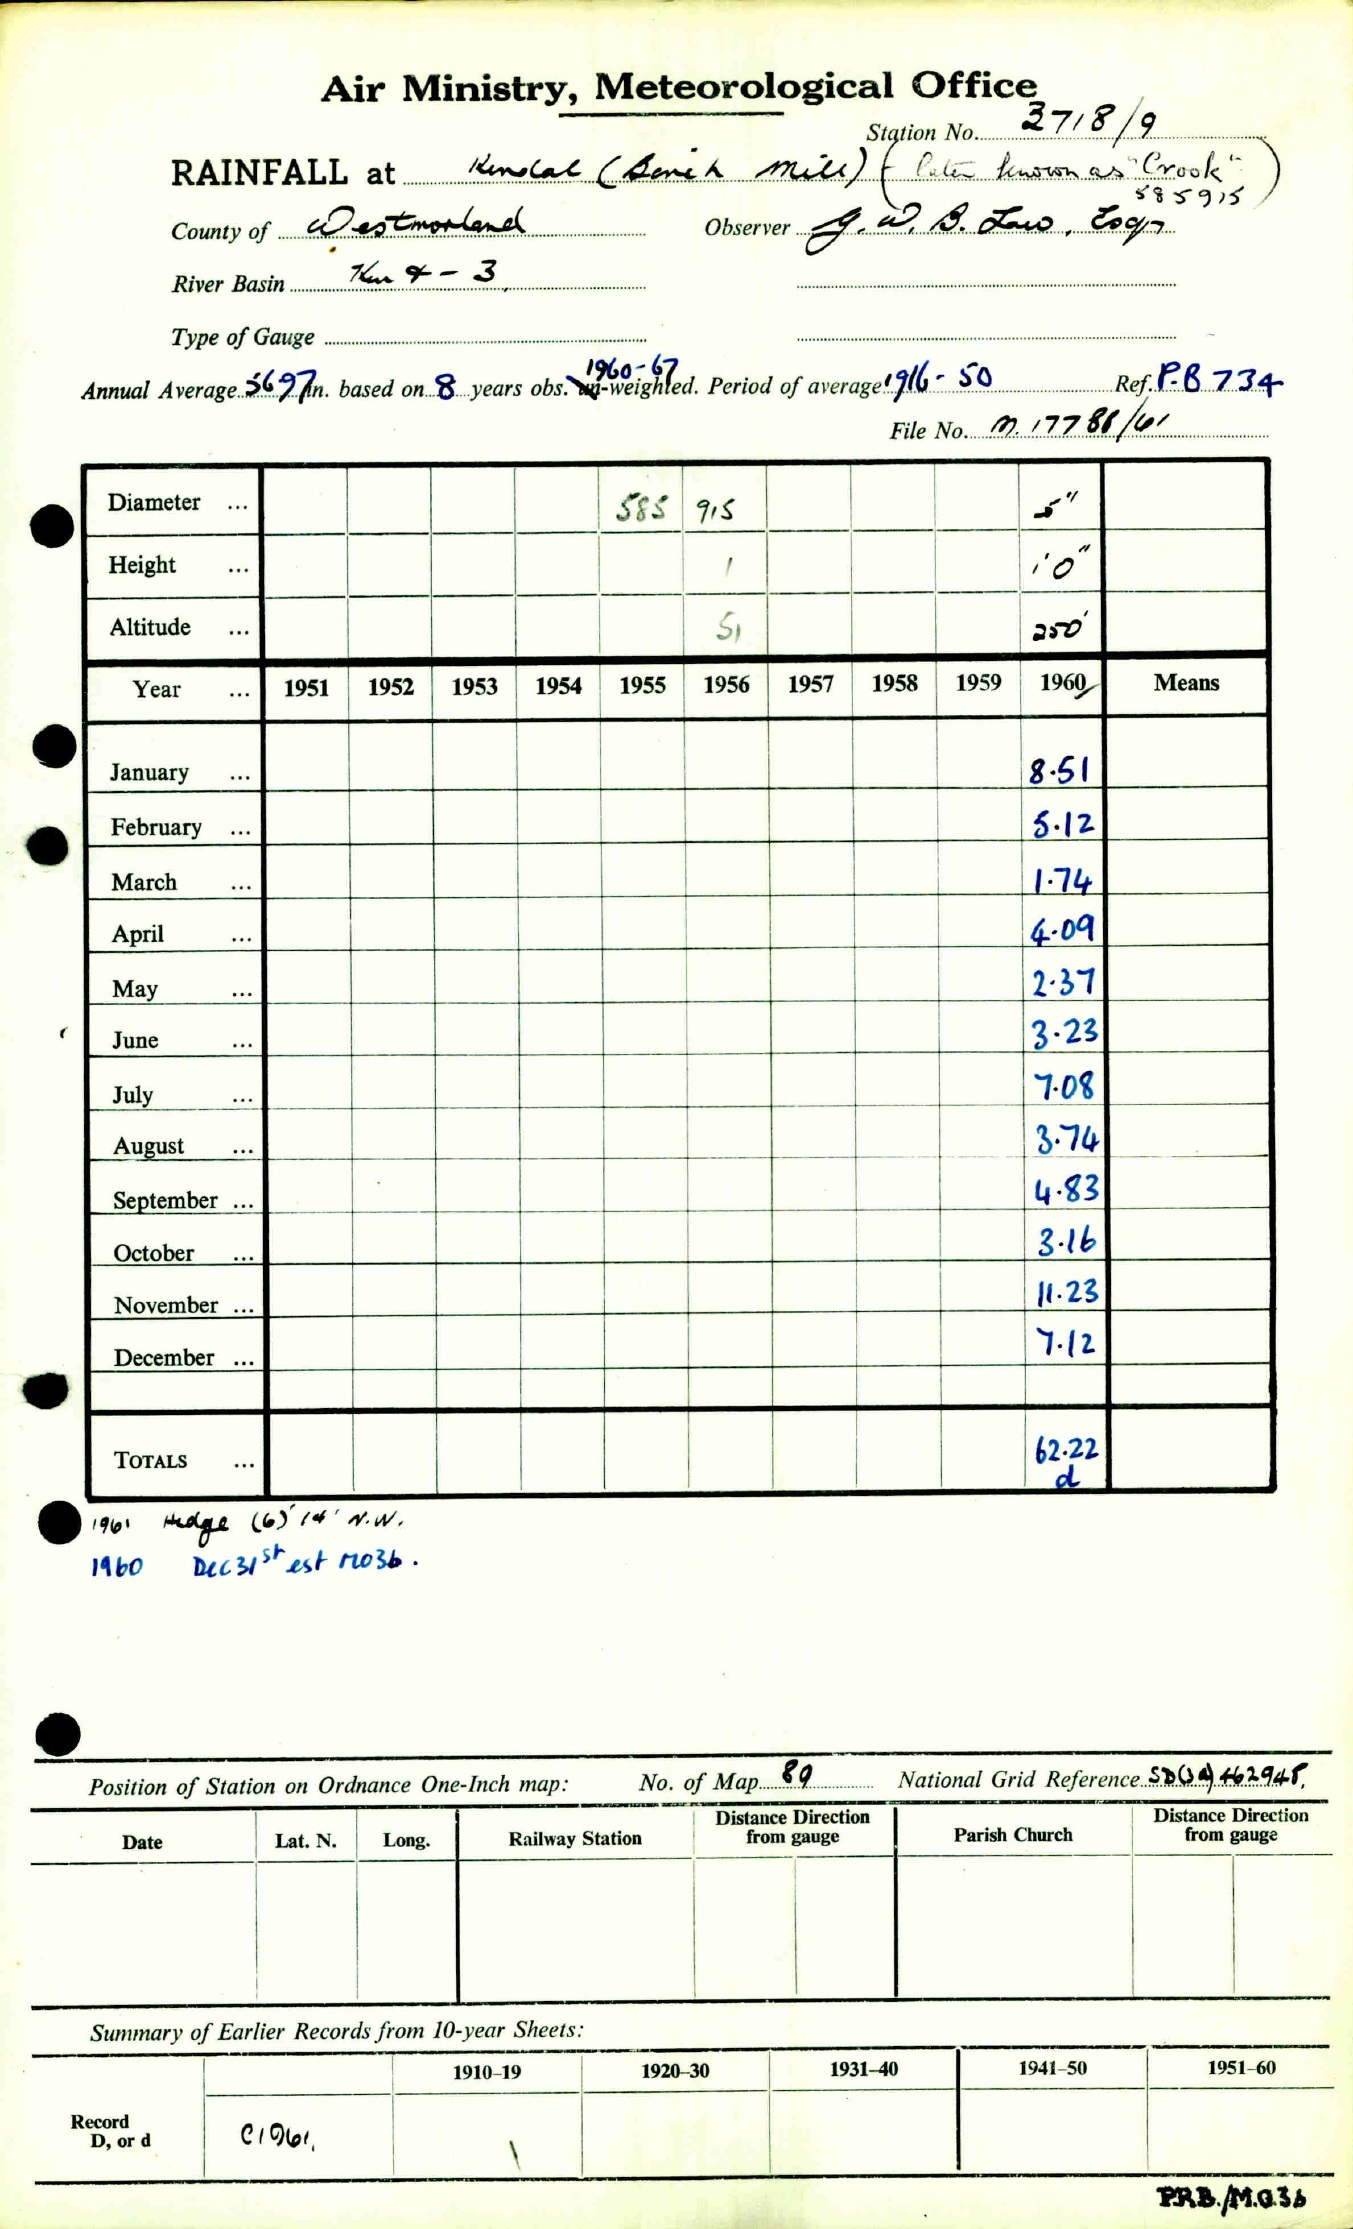 Air Ministry, Meteorological Office
Station No. 3718/9
RAINFALL at Kendal ( Mill) (later known as "Crook" 585915)
County of Westmorland Observer G. W. B. Law, Esq.
River Basin Ken 4-3
Type of Gauge
Annual Average 56.97 in. based on 8 years obs. 1960-67 un-weighted. Period of average 1916-50 Ref. P.B 734
File No. M. 17788/61
Diameter ... 585 915 5"
Height ... 1 1'0"
Altitude ... 51 250'
Year ... 1951 1952 1953 1954 1955 1956 1957 1958 1959 1960 Means
January ... 8.51
February ... 5.12
March ... 1.74
April ... 4.09
May ... 2.37
June ... 3.23
July ... 7.08
August ... 3.74
September ... 4.83
October ... 3.16
November ... 11.23
December ... 7.12
TOTALS ... 62.22
d
1961 Hedge (6)' 14' N.W.
1960 Dec 31st est MO3b.
Position of Station on Ordnance One-Inch map: No. of Map 89 National Grid Reference SD(34) 462948.
Date Lat. N. Long. Railway Station Distance Direction from gauge Parish Church Distance Direction from gauge
Summary of Earlier Records from 10-year Sheets:
1910–19 1920–30 1931–40 1941–50 1951–60
Record
D, or d C1961.
P.R.B./M.O.3b